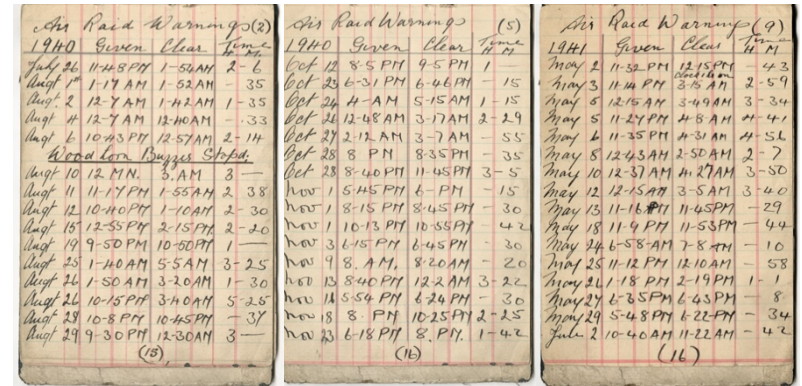 Air Raid Warnings (2)
1940 Given Clear Time
H M
July 26 11-48 PM 1-54 AM 2-6
Augt 1st 1-17 AM 1-52 AM - 35
Augt 2 12-7 AM 1-42 AM 1-35
Augt 4 12-7 AM 12-40 AM -.33
Augt 6 10-43 PM 12-57 AM 2-14
Woodhorn Buzzer Stopd.
Augt 10 12 M.N. 3 AM 3 —
Augt 11 11-17 PM 1-55 AM 2 38
Augt 12 10-40 PM 1-10 AM 2-30
Augt 15 12-55 PM 2-15 PM 2-20
Augt 19 9-50 PM 10-50 PM 1 —
Augt 25 1-40 AM 5-5 AM 3-25
Augt 26 1-50 AM 3-20 AM 1-30
Augt 26 10-15 PM 3-40 AM 5-25
Augt 28 10-8 PM 10-45 PM - 37
Augt 29 9-30 PM 12-30 AM 3 —
(15)
Air Raid Warnings (5)
1940 Given Clear Time
H M
Oct 12 8-5 PM 9-5 PM 1
Oct 23 6-31 PM 6-46 PM - 15
Oct 24 4- AM 5-15 AM 1-15
Oct 26 12-48 AM 3-17 AM 2-29
Oct 27 2-12 AM 3-7 AM - 55
Oct 28 8 PM 8-35 PM - 35
Oct 28 8-40 PM 11-45 PM 3-5
Nov 1 5-45 PM 6- PM - 15
Nov 1 8-15 PM 8-45 PM - 30
Nov 1 10-13 PM 10-55 PM - 42
Nov 3 6-15 PM 6-45 PM - 30
Nov 9 8. AM. 8-20 AM - 20
Nov 13 8-40 PM 12-2 AM 3-22
Nov 16 5-54 PM 6-24 PM - 30
Nov 18 8- PM 10-25 PM 2-25
Nov 23 6-18 PM 8. PM. 1-42
(16)
Air Raid Warnings (9)
1941 Given Clear Time
H M
May 2 11-32 PM 12-15 PM - 43
May 3 11-14 PM 3-15 AM 2-59
May 5 12-15 AM 3-49 AM 3-34
May 5 11-27 PM 4-8 AM 4-41
May 6 11-35 PM 4-31 AM 4-56
May 8 12-43 AM 2-50 AM 2-7
May 10 12-37 AM 4-27 AM 3-50
May 12 12-15 AM 3-5 AM 3-40
May 13 11-16 PM 11-45 PM - 29
May 18 11-9 PM 11-53 PM - 44
May 24 6-58 AM 7-8 AM - 10
May 25 11-12 PM 12-10 AM - 58
May 26 1-18 PM 2-19 PM 1-1
May 27 6-35 PM 6-43 PM - 8
May 29 5-48 PM 6-22 PM - 34
2 10-40 AM 11-22 AM - 42
(16)